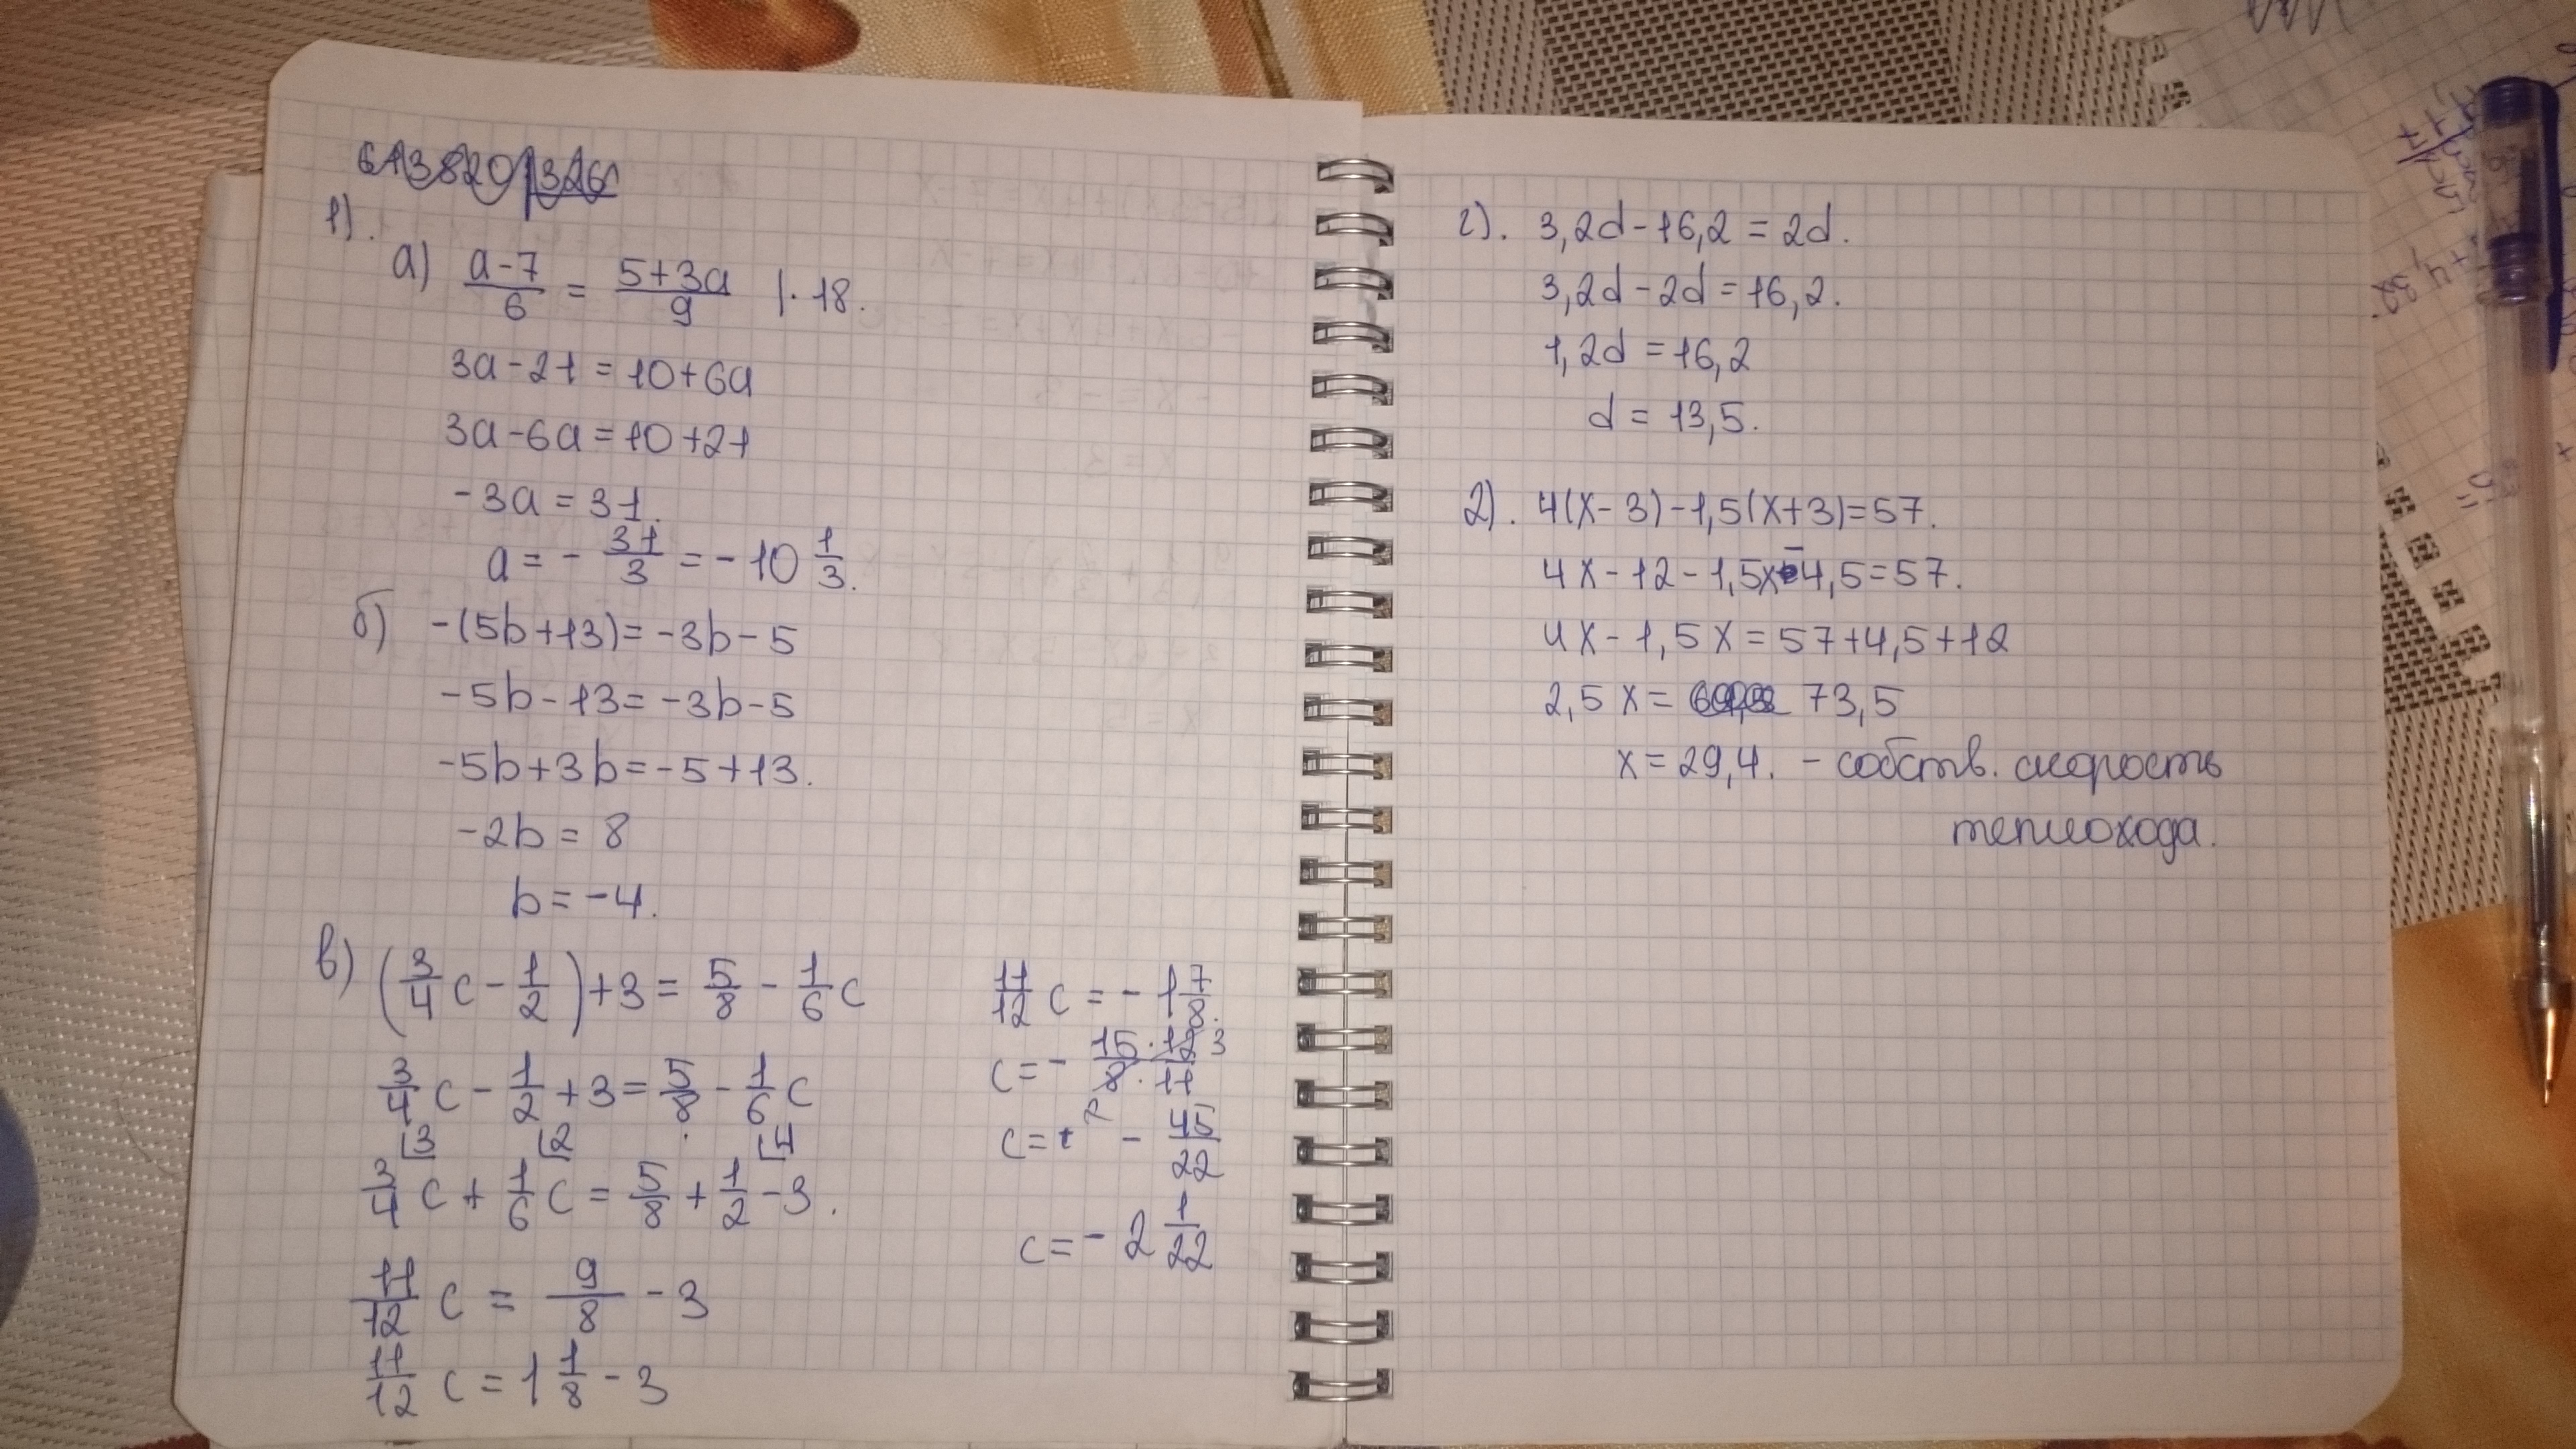 1).
а) a-7/6 = 5+3a/9 |·18.
3a-21=10+6a
3a-6a=10+21
-3a=31.
a=-31/3=-10 1/3.
б) -(5b+13)=-3b-5
-5b-13=-3b-5
-5b+3b=-5+13.
-2b=8
b=-4.
в) (3/4 c - 1/2)+3= 5/8 - 1/6 c
3/4 c - 1/2 +3= 5/8 - 1/6 c
3 2 4
3/4 c + 1/6 c = 5/8 + 1/2 -3.
11/12 c = 9/8 -3
11/12 c = 1 1/8 -3
11/12 c = -1 7/8.
c=- 15·12/8·11 3
2
c= - 45/22
c=-2 1/22
г). 3,2d-16,2=2d.
3,2d-2d=16,2.
1,2d=16,2
d=13,5.
2). 4(x-3)-1,5(x+3)=57.
4x-12-1,5x-4,5=57.
4x-1,5x=57+4,5+12
2,5x= 73,5
x=29,4. - собств. скорость
теплохода.